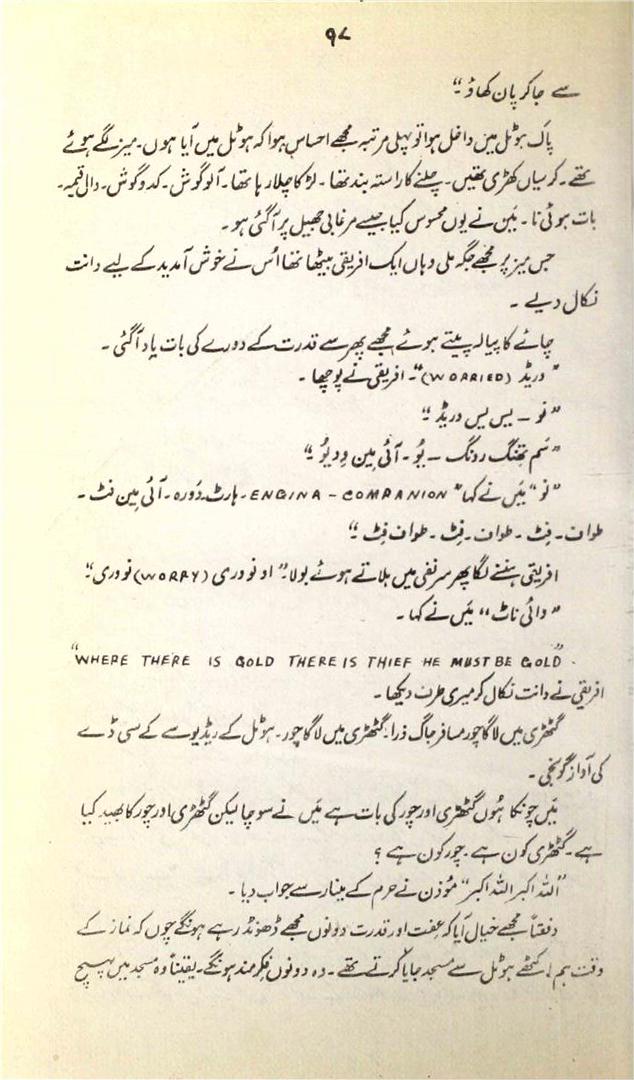 ۹۸
سے جا کر پان کھاؤ۔“
پاک ہوٹل میں داخل ہوا تو پہلی مرتبہ مجھے احساس ہوا کہ ہوٹل میں آیا ہوں۔ میز لگے ہوئے
تھے۔ کرسیاں کھڑی تھیں۔ چلنے کا راستہ بند تھا۔ لڑکا چلا رہا تھا۔ آلو گوش۔ کدو گوش۔ دال قیمہ۔
بات ہوئی نا۔ میں نے یوں محسوس کیا جیسے مرغابی جھیل پر آ گئی ہو۔
جس میز پر مجھے جگہ ملی وہاں ایک افریقی بیٹھا تھا اُس نے خوش آمدید کے لیے دانت
نکال دیے۔
چائے کا پیالہ پیتے ہوئے مجھے پھر سے قدرت کے دورے کی بات یاد آ گئی۔
”وریڈ (WORRIED)“۔ افریقی نے پوچھا۔
”نو ــ یس یس وریڈ“
”سَم تھنگ رونگ ــ یُو۔ آئی مین وِد یُو“
”نو“ میں نے کہا ”ENGINA - COMPANION۔ ہارٹ۔ دَورہ۔ آئی مین فٹ۔
طواف۔ فِٹ۔ طواف۔ فِٹ۔ طواف فِٹ“
افریقی ہنسنے لگا پھر سر نفی میں ہلاتے ہوئے بولا۔ ”او نو وری (WORRY) نو وری“۔
”وائی ناٹ“ میں نے کہا۔
“WHERE THERE IS GOLD THERE IS THIEF HE MUST BE GOLD”.
افریقی نے دانت نکال کر میری طرف دیکھا۔
گٹھڑی میں لاگا چور مسافر جاگ ذرا۔ گٹھڑی میں لاگا چور۔ ہوٹل کے ریڈیو سے کے سی ڈے
کی آواز گونجی۔
میں چونکا ہُوں گٹھڑی اور چور کی بات ہے میں نے سوچا لیکن گٹھڑی اور چور کا بھید کیا
ہے۔ گٹھڑی کون ہے۔ چور کون ہے؟
”اللہ اکبر اللہ اکبر“ مؤذن نے حرم کے مینار سے جواب دیا۔
دفعتاً مجھے خیال آیا کہ عِفت اور قدرت دونوں مجھے ڈھونڈ رہے ہونگے چوں کہ نماز کے
وقت ہم اکٹھے ہوٹل سے مسجد جایا کرتے تھے۔ وہ دونوں فکرمند ہونگے۔ یقیناً وہ مسجد میں پہنچ